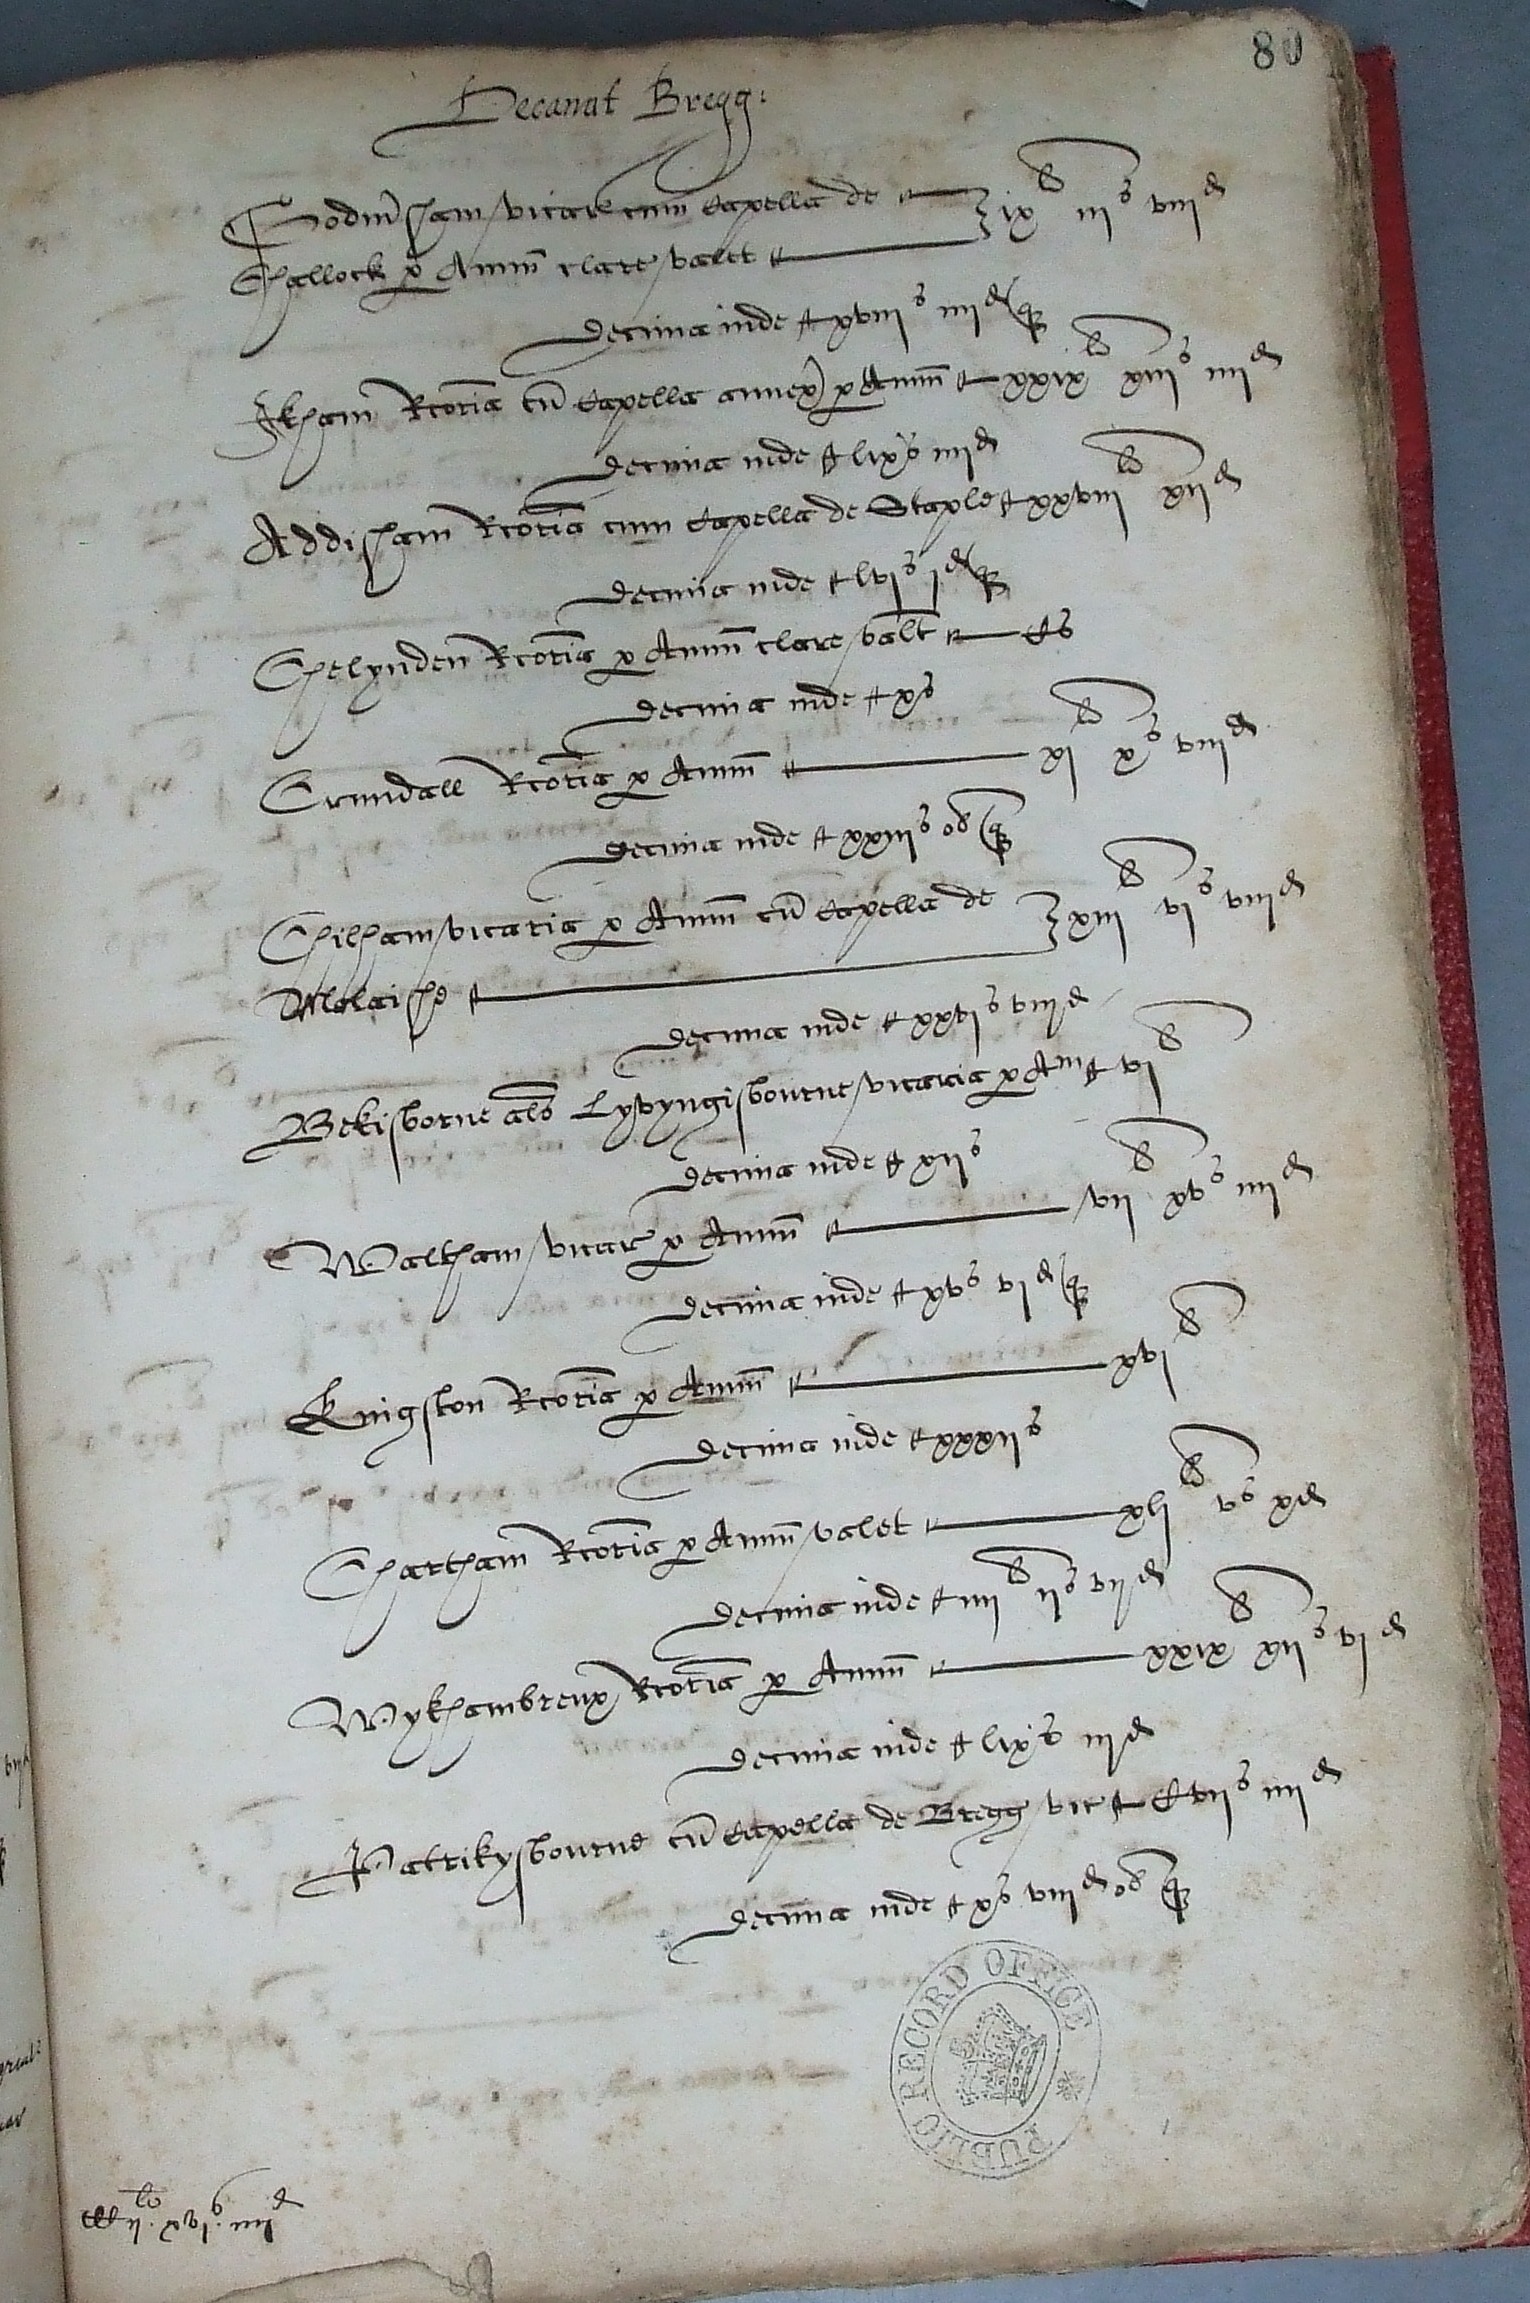 80
Decanat Bregg:
Godm̄sham vicar cum Capella de ixˡⁱ iijˢ viijᵈ
Challock p Annū clare valet
Decima inde xviijˢ iiijᵈ q
Ikham Rcoria cū Capella annex p Annū xxixˡⁱ xiijˢ iiijᵈ
Decima inde lixˢ iiijᵈ
Addisham Rcoria cum Capella de Staple xxviijˡⁱ xijᵈ
Decima inde lvjˢ jᵈ q
Chelynden Rcoria p Annū clare valt Cˢ
Decima inde xˢ
Crundall Rcoria p Annū xjˡⁱ xˢ viijᵈ
Decima inde xxiijˢ ob q
Chilham vicaria p Annū cū Capella de xiijˡⁱ vjˢ viijᵈ
Molaishe
Decima inde xxvjˢ viijᵈ
Bekisborne als Lyvyngisbourne vicaria p Am vjˡⁱ
Decima inde xijˢ
Waltham vicar p Annū vijˡⁱ xvˢ iiijᵈ
Decima inde xvˢ vjᵈ q
Kyngston Rcoria p Annū xvjˡⁱ
Decima inde xxxijˢ
Chartham Rcoria p Annū valet xljˡⁱ vˢ xᵈ
Decima inde iiijˡⁱ ijˢ vijᵈ
Wykhambreux Rcoria p Annū xxixˡⁱ xijˢ vjᵈ
Decima inde lixˢ iijᵈ
Patrikysbourne cū Capella de Bregg vic Cvijˢ iiijᵈ
Decima inde xˢ viijᵈ ob q
PUBLIC RECORD OFFICE
ij. xvjˢ. iiijᵈ